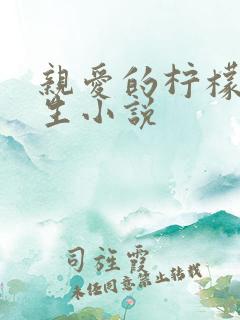 親愛的柠檬
生小説
司旌霞
未经同意禁止转载